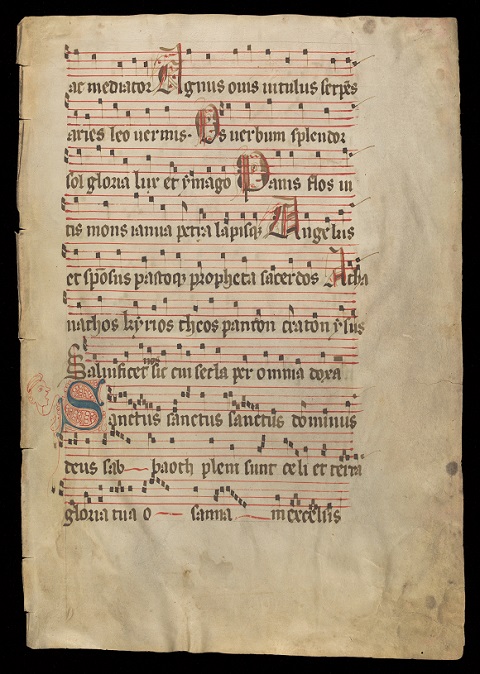 ac mediator Agnus ouis uitulus serpēs
aries leo uermis. Os uerbum splendor
sol gloria lux et ymago Panis flos ui
tis mons ianua petra lapisq; Angelus
et spōsus pastorq; propheta sacerdos Atha
nathos kyrios theos panton craton ysus
Saluificet nos sic cui secla per omnia doxa
Sanctus sanctus sanctus dominus
deus sab baoth pleni sunt celi et terra
gloria tua o sanna in excelsis